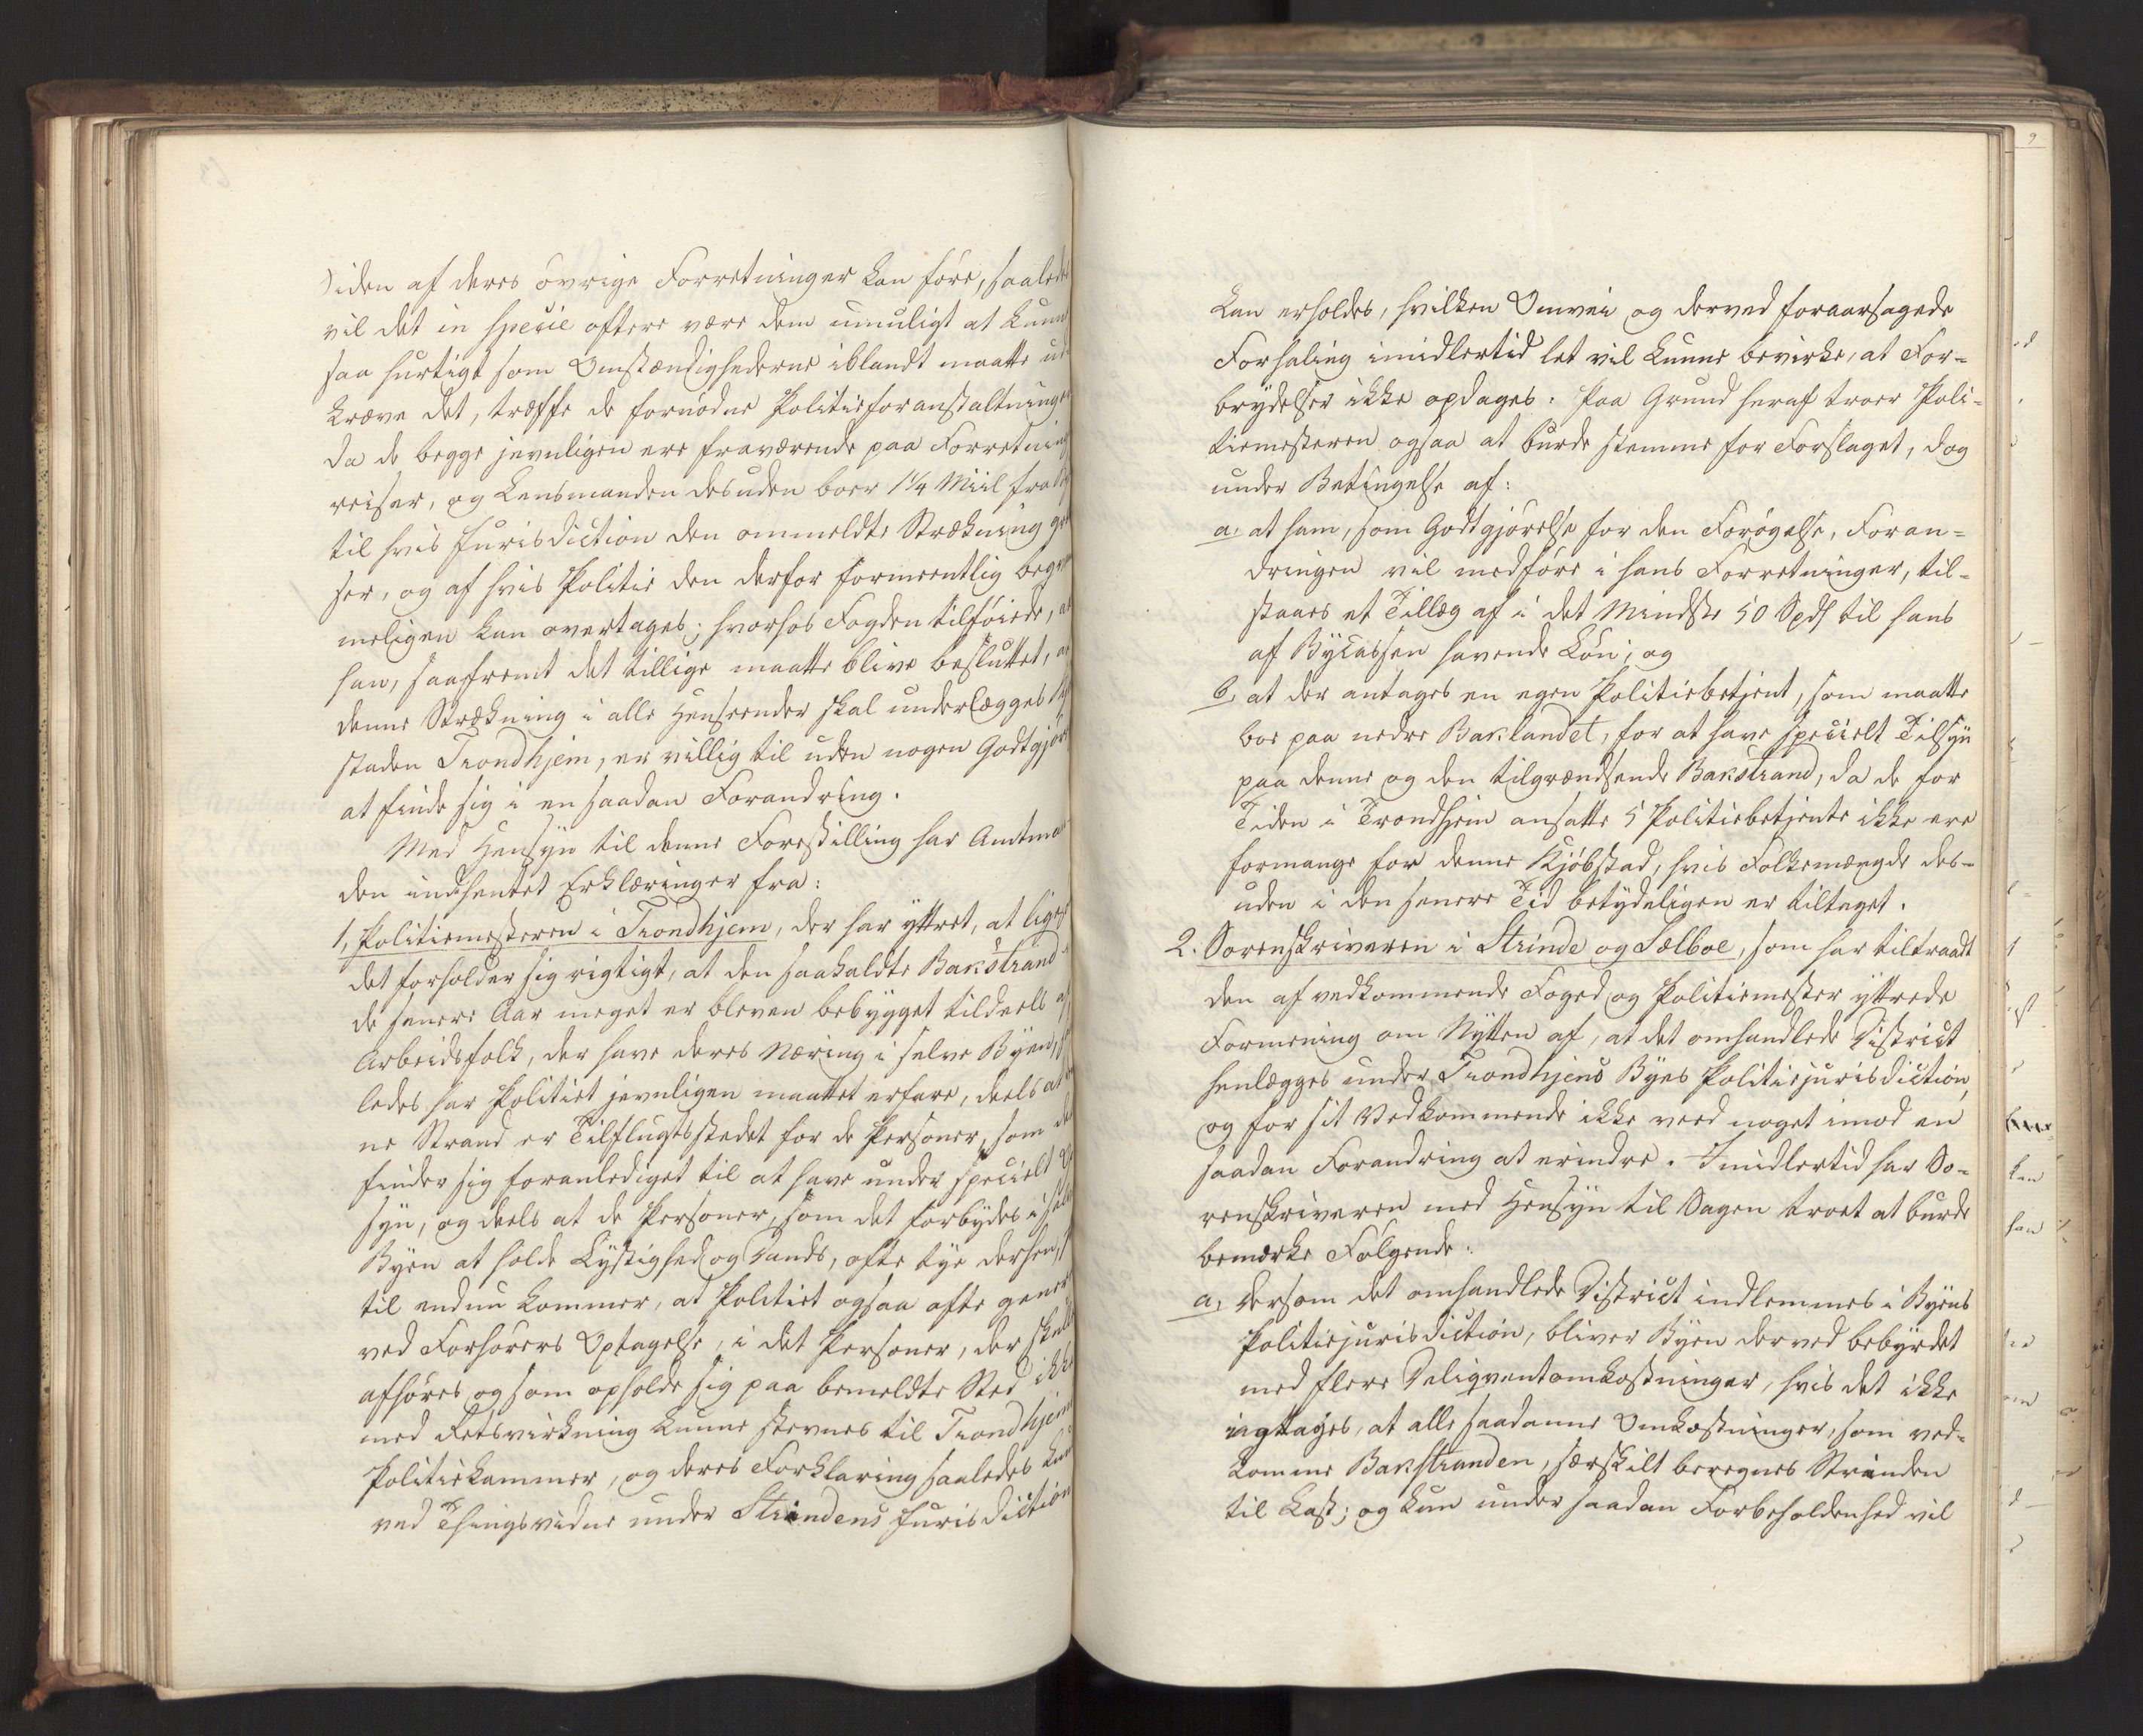 siden af deres övrige Forretninger kan före, saaledes
vil det in specie oftere være dem umuligt at kunne
saa hurtigt som Omstændighederne iblandt maatte ud-
kræve det, træffe de fornödne Politieforanstaltninger
da de begge jevnligen ere fraværende paa Forretnings
reiser, og Lensmanden desuden boer 1 1/4 Miil fra
til hvis Jurisdiction den ommeldte Strækning
ser, og af hvis Politie den derfor formeentlig beqvem
meligen kan overtages; hvorhos Fogden tilföiede, at
han, saafremt det tillige maatte blive besluttet, at
denne Strækning i alle Henseender skal underlægges
staden Trondhjem, er villig til uden nogen Godtgjör
at finde sig i en saadan Forandring.
Med Hensyn til denne Forestilling har Amtman
den indhentet Erklæringer fra:
1, Politiemesteren i Trondhjem, der har yttret, at lige
det forholder sig rigtigt, at den saakaldte Bakstrand
de senere Aar meget er bleven bebygget tildeels af
Arbeidsfolk, der have deres Næring i selve Byen,
ledes har Politiet jevnligen maattet erfare, deels at
ne Strand er Tilflugtsstedet for de Personer, som det
finder sig foranlediget til at have under specielt
syn, og deels at de Personer, som det forbydes i selve
Byen at holde Lystighed og Dands, ofte tye derhen,
til endnu kommer, at Politiet ogsaa ofte generes
ved Forhörers Optagelse, i det Personer, der skulle
afhöres og som opholde sig paa bemeldte Sted ikke
med Retsvirkning kunne stevnes til Trondhjems
Politiekammer, og deres Forklaring saaledes kun
ved Thingsvidne under Strindens Jurisdiction
kan erholdes, hvilken Omvei og derved foraarsagede
Forhaling imidlertid let vil kunne bevirke, at For-
brydelser ikke opdages. Paa Grund heraf troer Poli-
tiemesteren ogsaa at burde stemme for Forslaget, dog
under Betingelse af:
a, at ham, som Godtgjörelse for den Forögelse, Foran-
dringen vil medföre i hans Forretninger, til-
staaes et Tillæg af i det Mindste 50 Spd til hans
af Bycassen havende Lön; og
b, at der antages en egen Politiebetjent, som maatte
boe paa nedre Baklandet, for at have specielt Tilsyn
paa denne og den tilgrændsende Bakstrand, da de for
Tiden i Trondhjem ansatte 5 Politiebetjente ikke ere
formange for denne Kjöbstad, hvis Folkemængde des-
uden i den senere Tid betydeligen er tiltaget.
2. Sorenskriveren i Strinde og Sælboe, som har tiltraadt
den af vedkommende Foged og Politiemester yttrede
Formening om Nytten af, at det omhandlede District
henlægges under Trondhjens Byes Politiejurisdiction,
og for sit Vedkommende ikke veed noget imod en
saadan Forandring at erindre. Imidlertid har So-
renskriveren med Hensyn til Sagen troet at burde
bemærke Fölgende:
a, dersom det omhandlede District indlemmes i Byens
Politiejurisdiction, bliver Byen derved bebyrdet
med flere Deliqventomkostninger, hvis det ikke
iagttages, at alle saadanne Omkostninger, som ved-
komme Bakstranden, særskilt beregnes Strinden
til Last; og kun under saadan Forbeholdenhed vil